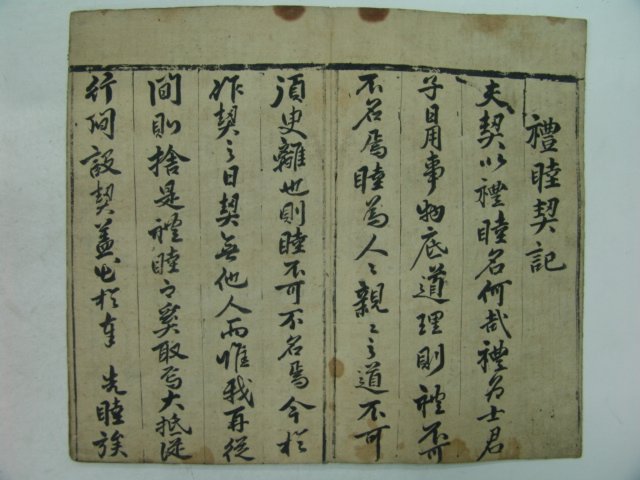 禮睦契記
夫契以禮睦名何哉禮爲士君
子日用事物底道理則禮不可
不名焉睦爲人〻親〻之道不可
須臾離也則睦不可不名焉今於
作契之日契無他人而唯我再從
間則捨是禮睦而奚取焉大抵從
行間設契盖出於奉先睦族